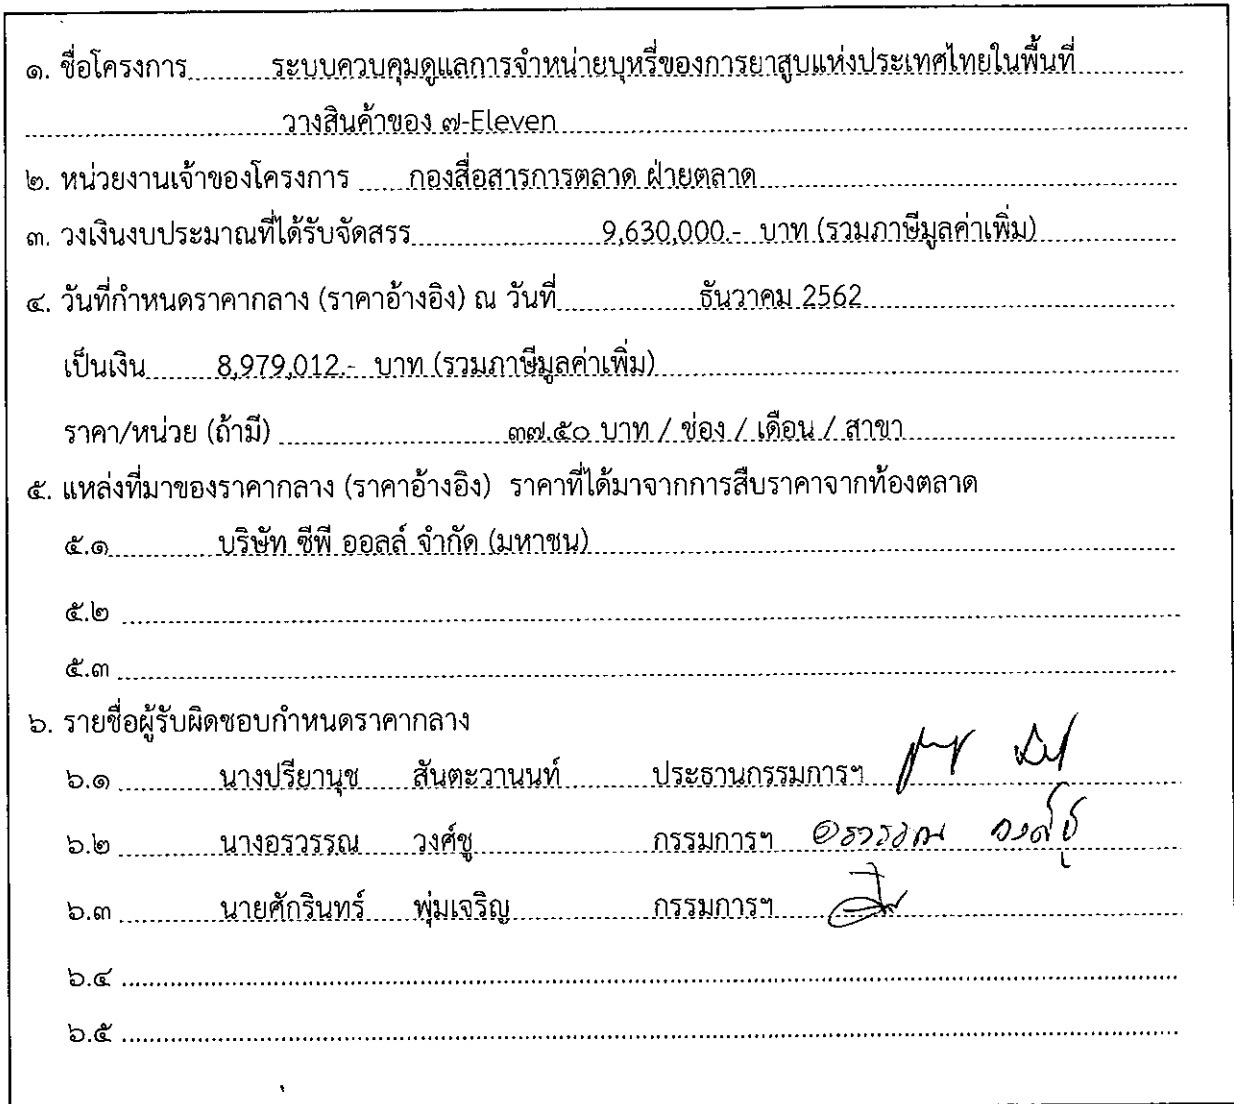 ๑. ชื่อโครงการ ระบบควบคุมดูแลการจำหน่ายบุหรี่ของการยาสูบแห่งประเทศไทยในพื้นที่
วางสินค้าของ ๗-Eleven
๒. หน่วยงานเจ้าของโครงการ กองสื่อสารการตลาด ฝ่ายตลาด
๓. วงเงินงบประมาณที่ได้รับจัดสรร 9,630,000.- บาท (รวมภาษีมูลค่าเพิ่ม)
๔. วันที่กำหนดราคากลาง (ราคาอ้างอิง) ณ วันที่ ธันวาคม 2562
เป็นเงิน 8,979,012.- บาท (รวมภาษีมูลค่าเพิ่ม)
ราคา/หน่วย (ถ้ามี) ๓๗.๕๐ บาท / ช่อง / เดือน / สาขา
๕. แหล่งที่มาของราคากลาง (ราคาอ้างอิง) ราคาที่ได้มาจากการสืบราคาจากท้องตลาด
๕.๑ บริษัท ซีพี ออลล์ จำกัด (มหาชน)
๕.๒
๕.๓
๖. รายชื่อผู้รับผิดชอบกำหนดราคากลาง
๖.๑ นางปรียานุช สันตะวานนท์ ประธานกรรมการฯ
๖.๒ นางอรวรรณ วงศ์ชู กรรมการฯ อรวรรณ วงศ์ชู
๖.๓ นายศักรินทร์ พุ่มเจริญ กรรมการฯ
๖.๔
๖.๕